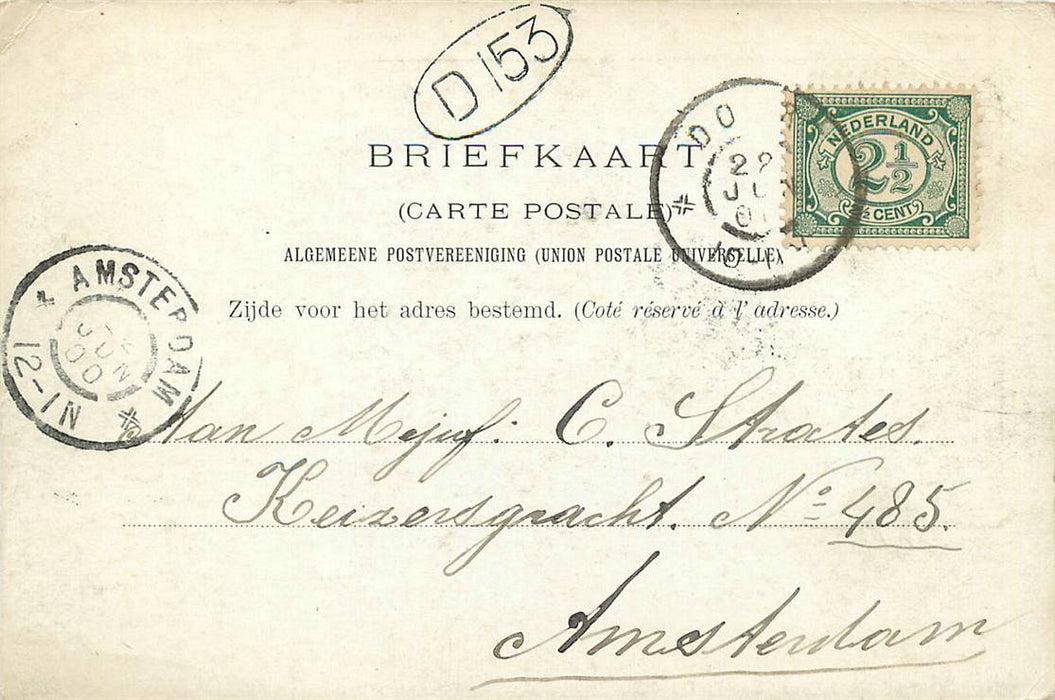 D 153
BRIEFKAART
(CARTE POSTALE)
ALGEMEENE POSTVEREENIGING (UNION POSTALE UNIVERSELLE)
Zijde voor het adres bestemd. (Coté réservé à l'adresse.)
NEDERLAND
2½
2½ CENT
DO
29
AMSTERDAM
JUN
00
12-1N
Aan Mejuf: C. Strates.
Keizersgracht. No 485.
Amsterdam